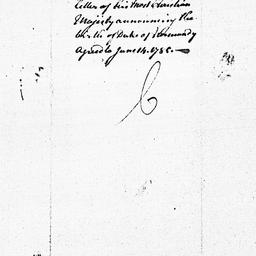 Letter of his most Christian
Majesty announcing the
birth of Duke of Normandy
agreed to June 14. 1785.—